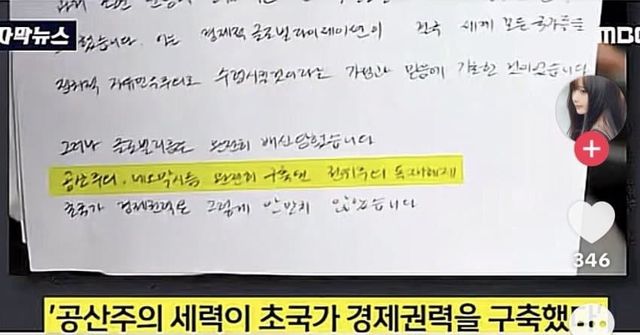 자막뉴스
MBC
이는 경제적 글로벌라이제이션이 세계 모든 국가들을
정치적 자유민주주의로 수렴시킬것이라는 믿음에 기초한 것이었습니다
그러나 글로벌리즘은 완전히 배신당했습니다
공산주의, 네오막시즘 완전히 구축된 전체주의 독재체제
초국가 경제권력은 그렇게 않았습니다
346
'공산주의 세력이 초국가 경제권력을